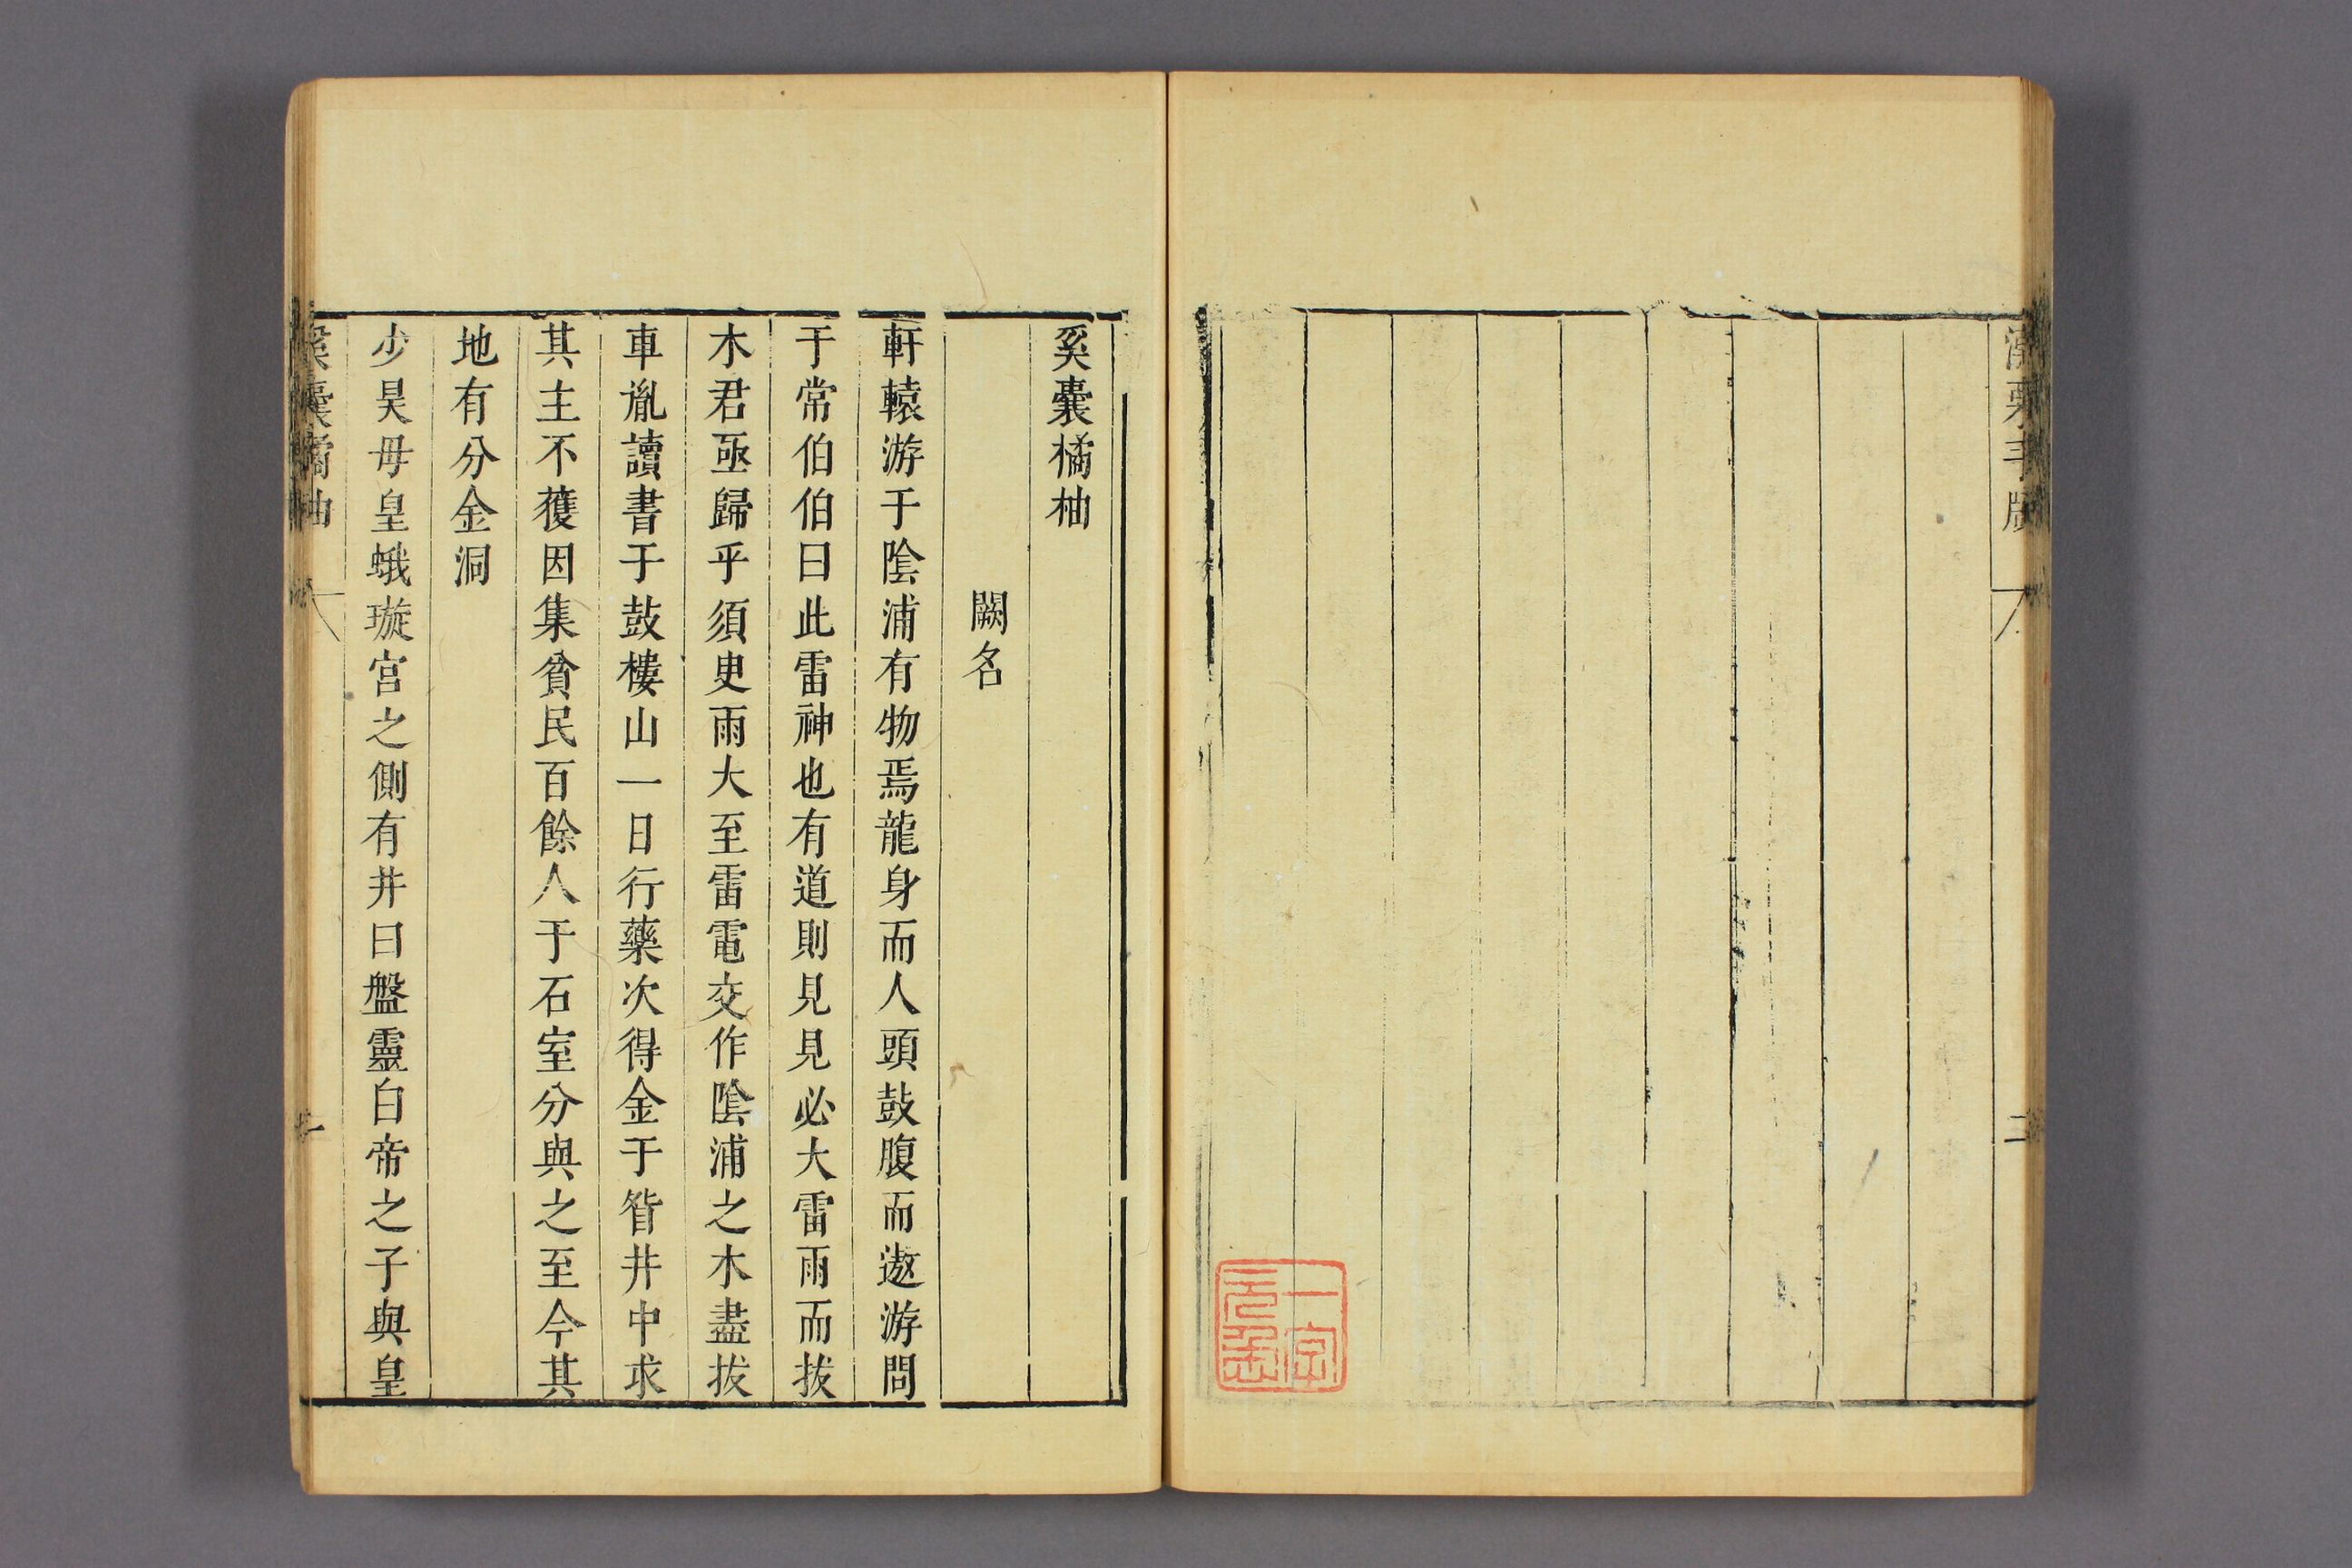 二
奚囊橘柚
闕名
軒轅游于陰浦有物焉龍身而人頭鼓腹而遨游問
于常伯伯曰此雷神也有道則見見必大雷雨而拔
木君亟歸乎須臾雨大至雷電交作陰浦之木盡拔
車胤讀書于鼓樓山一日行藥次得金于眢井中求
其主不獲因集貧民百餘人于石室分與之至今其
地有分金洞
少昊母皇蛾璇宮之側有井曰盤靈白帝之子與皇
奚囊橘柚